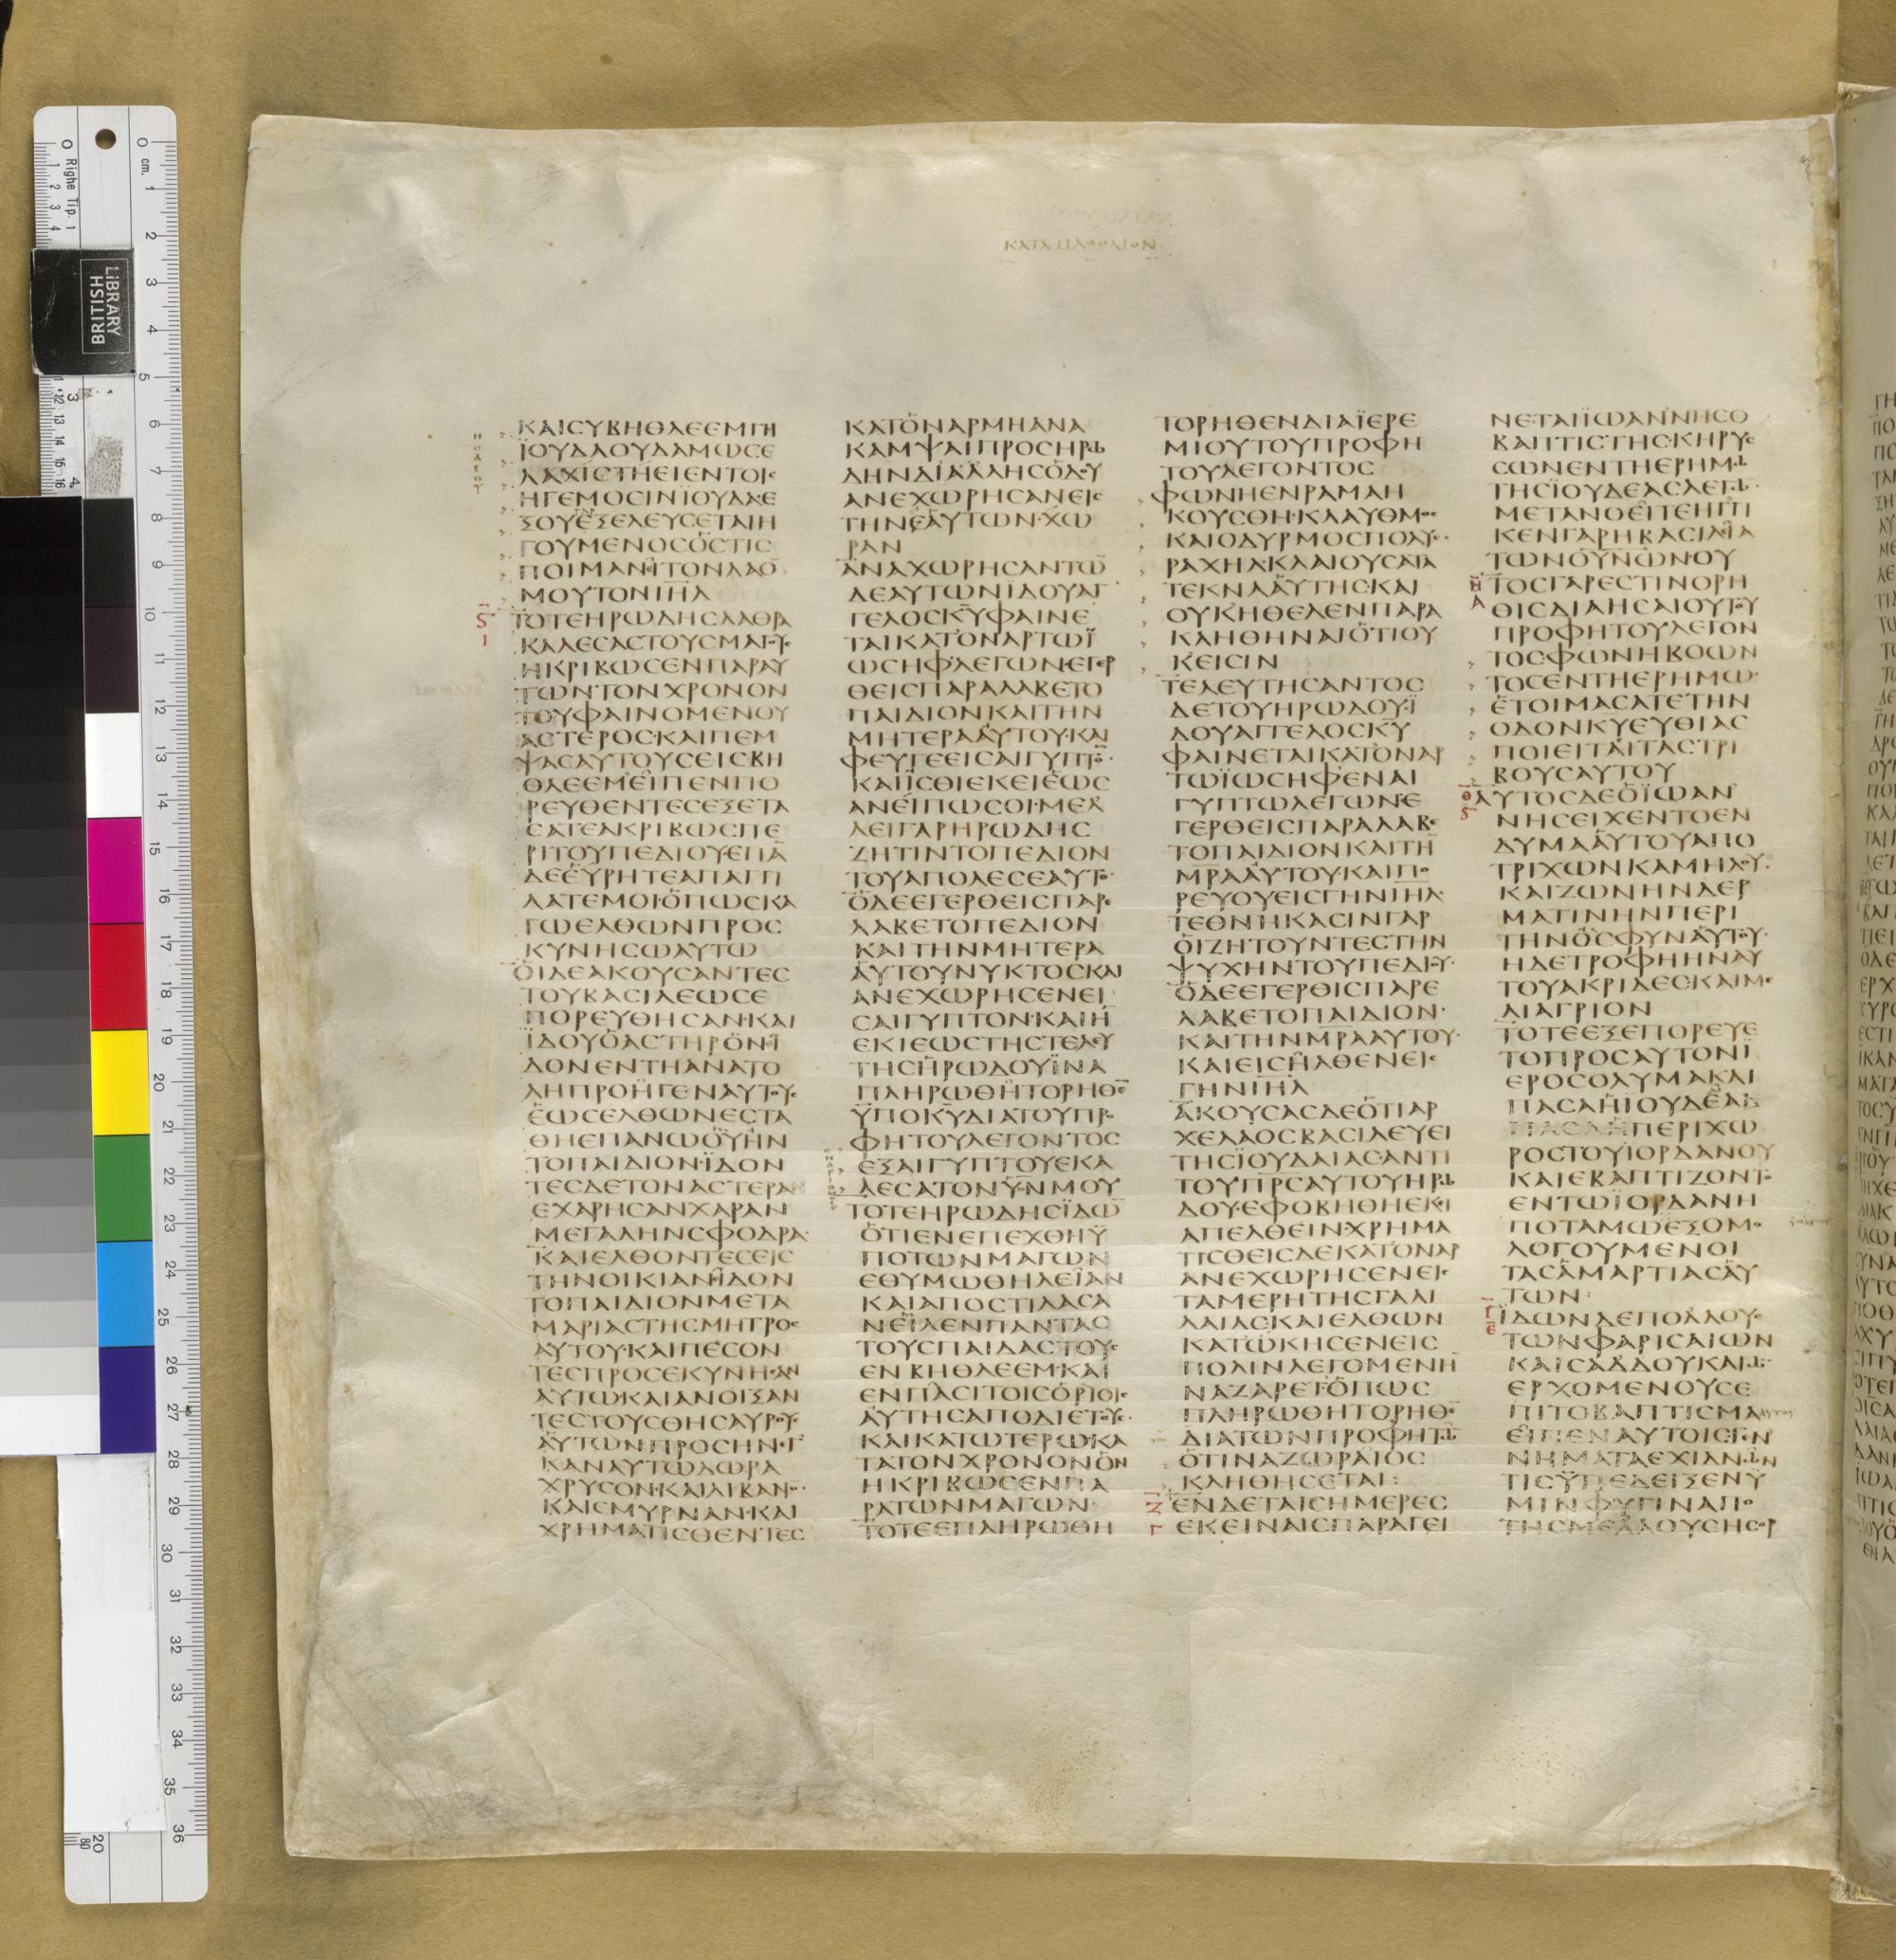 ΚΑΤΑΜΑΘΘΑΙΟΝ
ΚΑΙСΥΒΗΘΛΕΕΜΓΗ
ΪΟΥΔΑΟΥΔΑΜѠСΕ
ΛΑΧΙСΤΗΕΙΕΝΤΟΙС
ΗΓΕΜΟСΙΝΪΟΥΔΑΕ
ΞΟΥΕΞΕΛΕΥСΕΤΑΙΗ
ΓΟΥΜΕΝΟСΟСΤΙС
ΠΟΙΜΑΝΙΤΟΝΛΑΟ
ΜΟΥΤΟΝΙΗΛ
ΤΟΤΕΗΡѠΔΗСΛΑΘΡΑ
ΚΑΛΕСΑСΤΟΥСΜΑΓΟΥС
ΗΚΡΙΒѠСΕΝΠΑΡΑΥ
ΤѠΝΤΟΝΧΡΟΝΟΝ
ΤΟΥΦΑΙΝΟΜΕΝΟΥ
ΑСΤΕΡΟСΚΑΙΠΕΜ
ΨΑСΑΥΤΟΥСΕΙСΒΗ
ΘΛΕΕΜΕΙΠΕΝΠΟ
ΡΕΥΘΕΝΤΕСΕΞΕΤΑ
СΑΤΕΑΚΡΙΒѠСΠΕ
ΡΙΤΟΥΠΕΔΙΟΥΕΠΑ
ΔΕΕΥΡΗΤΕΑΠΑΓΓΙ
ΛΑΤΕΜΟΙΟΠѠСΚΑ
ΓѠΕΛΘѠΝΠΡΟС
ΚΥΝΗСѠΑΥΤѠ
ΟΙΔΕΑΚΟΥСΑΝΤΕС
ΤΟΥΒΑСΙΛΕѠСΕ
ΠΟΡΕΥΘΗСΑΝΚΑΙ
ΪΔΟΥΟΑСΤΗΡΟΝΪ
ΔΟΝΕΝΤΗΑΝΑΤΟ
ΛΗΠΡΟΗΓΕΝΑΥΤΟΥС
ΕѠСΕΛΘѠΝΕСΤΑ
ΘΗΕΠΑΝѠΟΥΗΝ
ΤΟΠΑΙΔΙΟΝΪΔΟΝ
ΤΕСΔΕΤΟΝΑСΤΕΡΑ
ΕΧΑΡΗСΑΝΧΑΡΑΝ
ΜΕΓΑΛΗΝСΦΟΔΡΑ
ΚΑΙΕΛΘΟΝΤΕСΕΙС
ΤΗΝΟΙΚΙΑΝΪΔΟΝ
ΤΟΠΑΙΔΙΟΝΜΕΤΑ
ΜΑΡΙΑСΤΗСΜΗΤΡΟС
ΑΥΤΟΥΚΑΙΠΕСΟΝ
ΤΕСΠΡΟСΕΚΥΝΗСΑΝ
ΑΥΤѠΚΑΙΑΝΟΙΞΑΝ
ΤΕСΤΟΥСΘΗСΑΥΡΟΥС
ΑΥΤѠΝΠΡΟСΗΝΕΓ
ΚΑΝΑΥΤѠΔѠΡΑ
ΧΡΥСΟΝΚΑΙΛΙΒΑΝΟΝ
ΚΑΙСΜΥΡΝΑΝΚΑΙ
ΧΡΗΜΑΤΙСΘΕΝΤΕС
ΚΑΤΟΝΑΡΜΗΑΝΑ
ΚΑΜΨΑΙΠΡΟСΗΡѠ
ΔΗΝΔΙΑΛΛΗСΟΔΟΥ
ΑΝΕΧѠΡΗСΑΝΕΙС
ΤΗΝΕΑΥΤѠΝΧѠ
ΡΑΝ
ΑΝΑΧѠΡΗСΑΝΤѠ
ΔΕΑΥΤѠΝΪΔΟΥΑΓ
ΓΕΛΟСΚΥΦΑΙΝΕ
ΤΑΙΚΑΤΟΝΑΡΤѠΪ
ѠСΗΦΛΕΓѠΝΕΓΕΡ
ΘΕΙСΠΑΡΑΛΑΒΕΤΟ
ΠΑΙΔΙΟΝΚΑΙΤΗΝ
ΜΗΤΕΡΑΑΥΤΟΥΚΑΙ
ΦΕΥΓΕΕΙСΑΙΓΥΠΤΟ
ΚΑΙΪСΘΙΕΚΕΙΕѠС
ΑΝΕΙΠѠСΟΙΜΕΛ
ΛΕΙΓΑΡΗΡѠΔΗС
ΖΗΤΙΝΤΟΠΕΔΙΟΝ
ΤΟΥΑΠΟΛΕСΕΑΥΤΟ
ΟΔΕΕΓΕΡΘΕΙСΠΑΡΕ
ΛΑΒΕΤΟΠΕΔΙΟΝ
ΚΑΙΤΗΝΜΗΤΕΡΑ
ΑΥΤΟΥΝΥΚΤΟСΚΑΙ
ΑΝΕΧѠΡΗСΕΝΕΙ
СΑΙΓΥΠΤΟΝΚΑΙΗ
ΕΚΙΕѠСΤΗСΤΕΛΕΥ
ΤΗСΗΡѠΔΟΥΪΝΑ
ΠΛΗΡѠΘΗΤΟΡΗΘΕ
ΫΠΟΚΥΔΙΑΤΟΥΠΡΟ
ΦΗΤΟΥΛΕΓΟΝΤΟС
ΕΞΑΙΓΥΠΤΟΥΕΚΑ
ΛΕСΑΤΟΝΥΝΜΟΥ
ΤΟΤΕΗΡѠΔΗСΪΔѠ
ΟΤΙΕΝΕΠΕΧΘΗΫ
ΠΟΤѠΝΜΑΓѠΝ
ΕΘΥΜѠΘΗΛΕΙΑΝ
ΚΑΙΑΠΟСΤΙΛΑСΑ
ΝΕΙΛΕΝΠΑΝΤΑС
ΤΟΥСΠΑΙΔΑСΤΟΥС
ΕΝΒΗΘΛΕΕΜΚΑΙ
ΕΝΠΑСΙΤΟΙСΟΡΙΟΙС
ΑΥΤΗСΑΠΟΔΙΕΤΟΥС
ΚΑΙΚΑΤѠΤΕΡѠΚΑ
ΤΑΤΟΝΧΡΟΝΟΝΟΝ
ΗΚΡΙΒѠСΕΝΠΑ
ΡΑΤѠΝΜΑΓѠΝ
ΤΟΤΕΕΠΛΗΡѠΘΗ
ΤΟΡΗΘΕΝΔΙΑΪΕΡΕ
ΜΙΟΥΤΟΥΠΡΟΦΗ
ΤΟΥΛΕΓΟΝΤΟС
ΦѠΝΗΕΝΡΑΜΑΗ
ΚΟΥСΘΗΚΛΑΥΘΜΟС
ΚΑΙΟΔΥΡΜΟСΠΟΛΥС
ΡΑΧΗΛΚΛΑΙΟΥСΑΤΑ
ΤΕΚΝΑΑΥΤΗСΚΑΙ
ΟΥΚΗΘΕΛΕΝΠΑΡΑ
ΚΛΗΘΗΝΑΙΟΤΙΟΥ
ΚΕΙСΙΝ
ΤΕΛΕΥΤΗСΑΝΤΟС
ΔΕΤΟΥΗΡѠΔΟΥΪ
ΔΟΥΑΓΓΕΛΟСΚΥ
ΦΑΙΝΕΤΑΙΚΑΤΟΝΑΡ
ΤѠΪѠСΗΦΕΝΑΙ
ΓΥΠΤѠΛΕΓѠΝΕ
ΓΕΡΘΕΙСΠΑΡΑΛΑΒΕ
ΤΟΠΑΙΔΙΟΝΚΑΙΤΗ
ΜΡΑΑΥΤΟΥΚΑΙΠΟ
ΡΕΥΟΥΕΙСΓΗΝΙΗΛ
ΤΕΘΝΗΚΑСΙΝΓΑΡ
ΟΙΖΗΤΟΥΝΤΕСΤΗΝ
ΨΥΧΗΝΤΟΥΠΕΔΙΟΥ
ΟΔΕΕΓΕΡΘΙСΠΑΡΕ
ΛΑΒΕΤΟΠΑΙΔΙΟΝ
ΚΑΙΤΗΝΜΡΑΑΥΤΟΥ
ΚΑΙΕΙСΗΛΘΕΝΕΙС
ΓΗΝΙΗΛ
ΑΚΟΥСΑСΔΕΟΤΙΑΡ
ΧΕΛΑΟСΒΑСΙΛΕΥΕΙ
ΤΗСΪΟΥΔΑΙΑСΑΝΤΙ
ΤΟΥΠΡСΑΥΤΟΥΗΡѠ
ΔΟΥΕΦΟΒΗΘΗΕΚΙ
ΑΠΕΛΘΕΙΝΧΡΗΜΑ
ΤΙСΘΕΙСΔΕΚΑΤΟΝΑΡ
ΑΝΕΧѠΡΗСΕΝΕΙС
ΤΑΜΕΡΗΤΗСΓΑΛΙ
ΛΑΙΑСΚΑΙΕΛΘѠΝ
ΚΑΤѠΚΗСΕΝΕΙС
ΠΟΛΙΝΛΕΓΟΜΕΝΗ
ΝΑΖΑΡΕΤΟΠѠС
ΠΛΗΡѠΘΗΤΟΡΗΘΕ
ΔΙΑΤѠΝΠΡΟΦΗΤѠ
ΟΤΙΝΑΖѠΡΑΙΟС
ΚΛΗΘΗСΕΤΑΙ:
ΕΝΔΕΤΑΙСΗΜΕΡΕС
ΕΚΕΙΝΑΙСΠΑΡΑΓΕΙ
ΝΕΤΑΙΪѠΑΝΝΗСΟ
ΒΑΠΤΙСΤΗСΚΗΡΥС
СѠΝΕΝΤΗΕΡΗΜѠ
ΤΗСΪΟΥΔΕΑСΛΕΓѠ
ΜΕΤΑΝΟΕΙΤΕΗΓΓΙ
ΚΕΝΓΑΡΗΒΑСΙΛΙΑ
ΤѠΝΟΥΝѠΝΟΥ
ΤΟСΓΑΡΕСΤΙΝΟΡΗ
ΘΙСΔΙΑΗСΑΙΟΥΤΟΥ
ΠΡΟΦΗΤΟΥΛΕΓΟΝ
ΤΟСΦѠΝΗΒΟѠΝ
ΤΟСΕΝΤΗΕΡΗΜѠ
ΕΤΟΙΜΑСΑΤΕΤΗΝ
ΟΔΟΝΚΥΕΥΘΙΑС
ΠΟΙΕΙΤΑΙΤΑСΤΡΙ
ΒΟΥСΑΥΤΟΥ
ΑΥΤΟСΔΕΟΪѠΑΝ
ΝΗСΕΙΧΕΝΤΟΕΝ
ΔΥΜΑΑΥΤΟΥΑΠΟ
ΤΡΙΧѠΝΚΑΜΗΛΟΥ
ΚΑΙΖѠΝΗΝΔΕΡ
ΜΑΤΙΝΗΝΠΕΡΙ
ΤΗΝΟСΦΥΝΑΥΤΟΥ
ΗΔΕΤΡΟΦΗΗΝΑΥ
ΤΟΥΑΚΡΙΔΕСΚΑΙΜΕ
ΛΙΑΓΡΙΟΝ
ΤΟΤΕΕΞΕΠΟΡΕΥΕ
ΤΟΠΡΟСΑΥΤΟΝΪ
ΕΡΟСΟΛΥΜΑΚΑΙ
ΠΑСΑΗΙΟΥΔΕΑΚ
ΠΑСΑΗΠΕΡΙΧѠ
ΡΟСΤΟΥΪΟΡΔΑΝΟΥ
ΚΑΙΕΒΑΠΤΙΖΟΝΤΟ
ΕΝΤѠΪΟΡΔΑΝΗ
ΠΟΤΑΜѠΕΞΟΜΟ
ΛΟΓΟΥΜΕΝΟΙ
ΤΑСΑΜΑΡΤΙΑСΑΥ
ΤѠΝ:
ΪΔѠΝΔΕΠΟΛΛΟΥС
ΤѠΝΦΑΡΙСΑΙѠΝ
ΚΑΙСΑΔΔΟΥΚΑΙѠ
ΕΡΧΟΜΕΝΟΥСΕ
ΠΙΤΟΒΑΠΤΙСΜΑ
ΕΙΠΕΝΑΥΤΟΙСΓΕΝ
ΝΗΜΑΤΑΕΧΙΔΝѠΝ
ΤΙСΫΠΕΔΕΙΞΕΝΫ
ΜΙΝΦΥΓΙΝΑΠΟ
ΤΗСΜΕΛΛΟΥСΗСΟΡ
BRITISH
LIBRARY